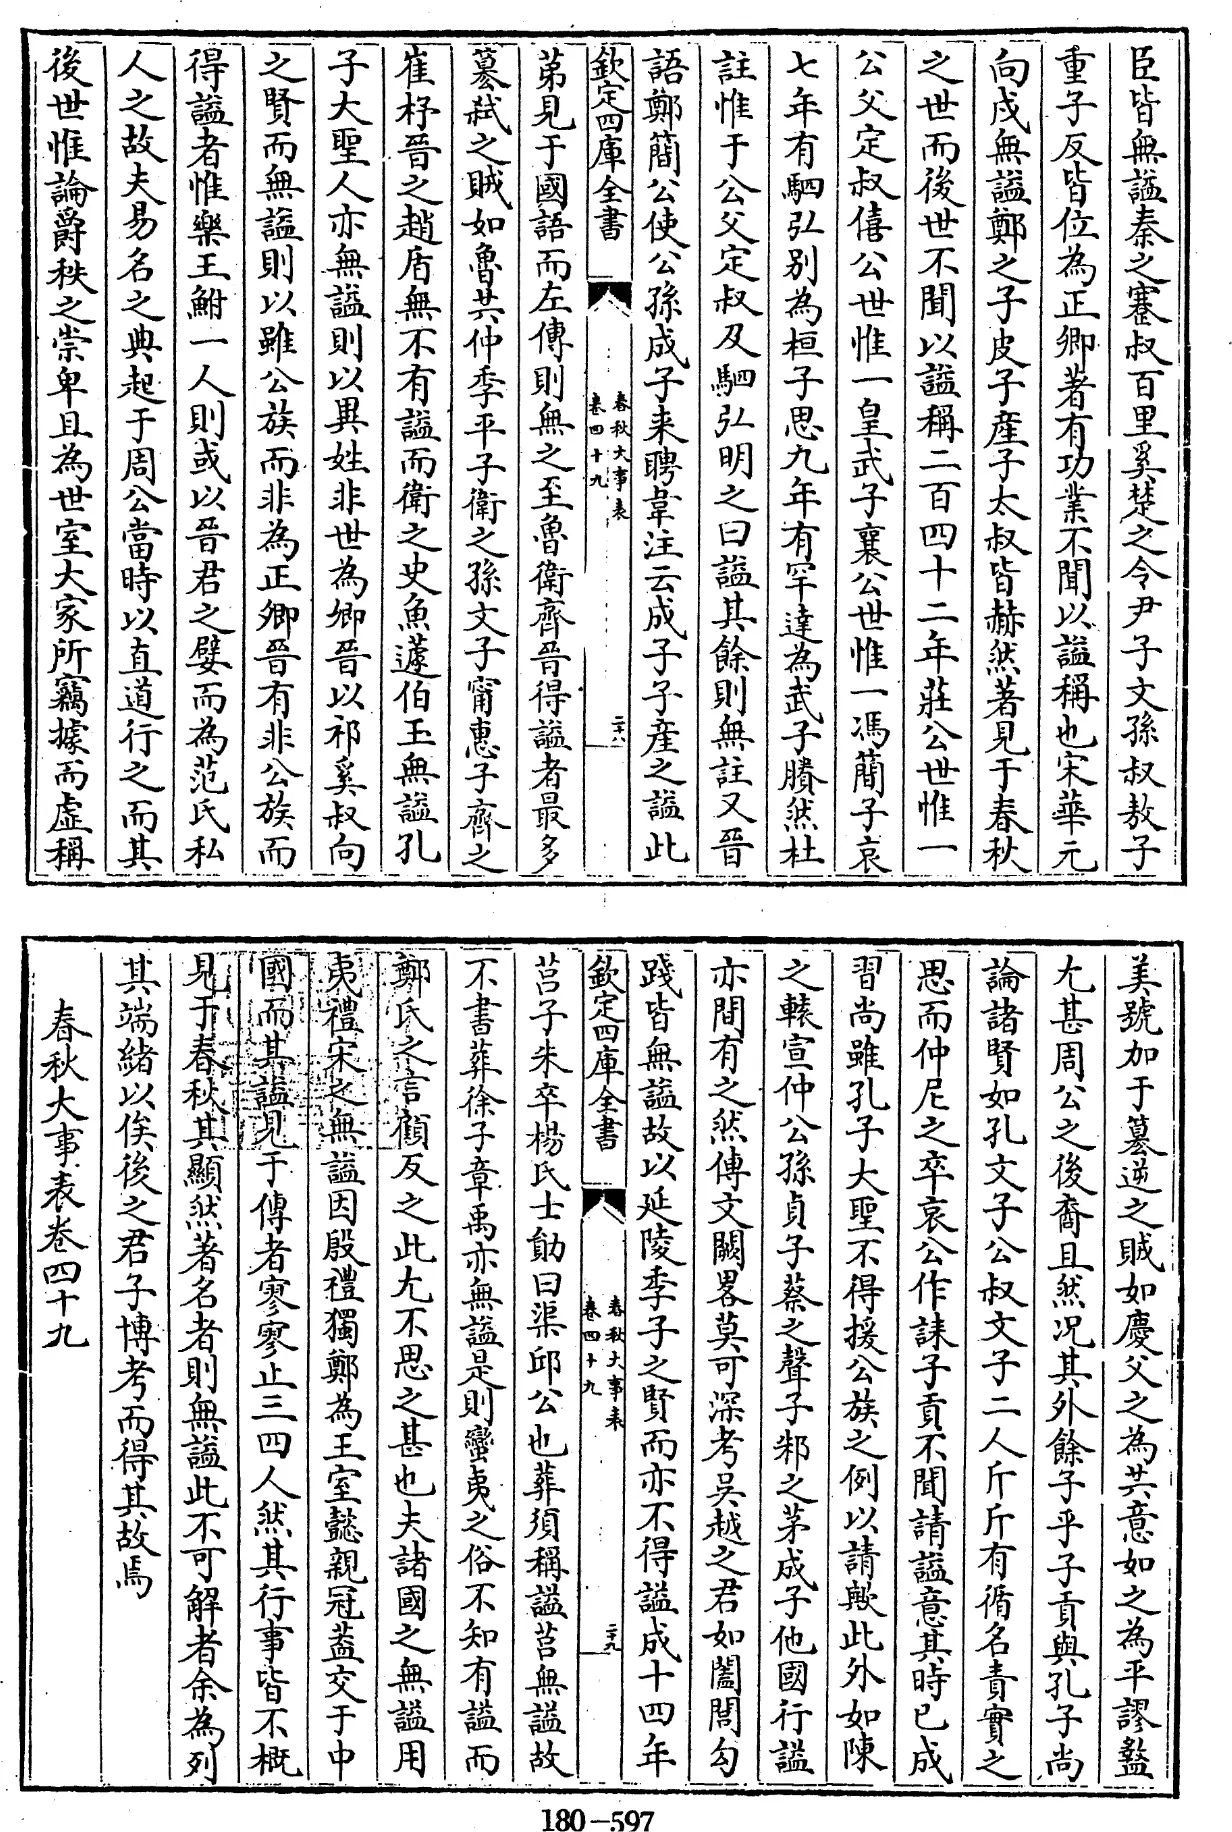 臣皆無諡秦之蹇叔百里奚楚之令尹子文孫叔敖子
重子反皆位為正卿著有功業不聞以諡稱也宋華元
向戌無諡鄭之子皮子產子太叔皆赫然著見于春秋
之世而後世不聞以諡稱二百四十二年莊公世惟一
公父定叔僖公世惟一皇武子襄公世惟一馮簡子哀
七年有駟弘別為桓子思九年有罕達為武子賸然杜
註惟于公父定叔及駟弘明之曰諡其餘則無註又晉
語鄭簡公使公孫成子来聘韋注云成子子產之諡此
欽定四庫全書
春秋大事表
卷四十九
二十八
苐見于國語而左傳則無之至魯衛齊晉得諡者最多
簒弑之賊如魯共仲季平子衛之孫文子甯惠子齊之
崔杼晉之趙盾無不有諡而衛之史魚蘧伯玉無諡孔
子大聖人亦無諡則以異姓非世為卿晉以祁奚叔向
之賢而無諡則以雖公族而非為正卿晉有非公族而
得諡者惟樂王鮒一人則或以晉君之嬖而為范氏私
人之故夫易名之典起于周公當時以直道行之而其
後世惟論爵秩之崇卑且為世室大家所竊據而虛稱
美號加于簒逆之賊如慶父之為共意如之為平謬盭
尢甚周公之後裔且然况其外餘子乎子貢與孔子尚
論諸賢如孔文子公叔文子二人斤斤有循名責實之
思而仲尼之卒哀公作誄子貢不聞請諡意其時已成
習尚雖孔子大聖不得援公族之例以請歟此外如陳
之轅宣仲公孫貞子蔡之聲子邾之茅成子他國行諡
亦間有之然傳文闕畧莫可深考吳越之君如闔閭勾
踐皆無諡故以延陵季子之賢而亦不得諡成十四年
欽定四庫全書
春秋大事表
卷四十九
二十九
莒子朱卒楊氏士勛曰渠邱公也葬須稱諡莒無諡故
不書葬徐子章禹亦無諡是則蠻夷之俗不知有諡而
鄭氏之言顧反之此尢不思之甚也夫諸國之無諡用
夷禮宋之無諡因殷禮獨鄭為王室懿親冠蓋交于中
國而其諡見于傳者寥寥止三四人然其行事皆不概
見于春秋其顯然著名者則無諡此不可解者余為列
其端緒以俟後之君子博考而得其故焉
春秋大事表卷四十九
180-597